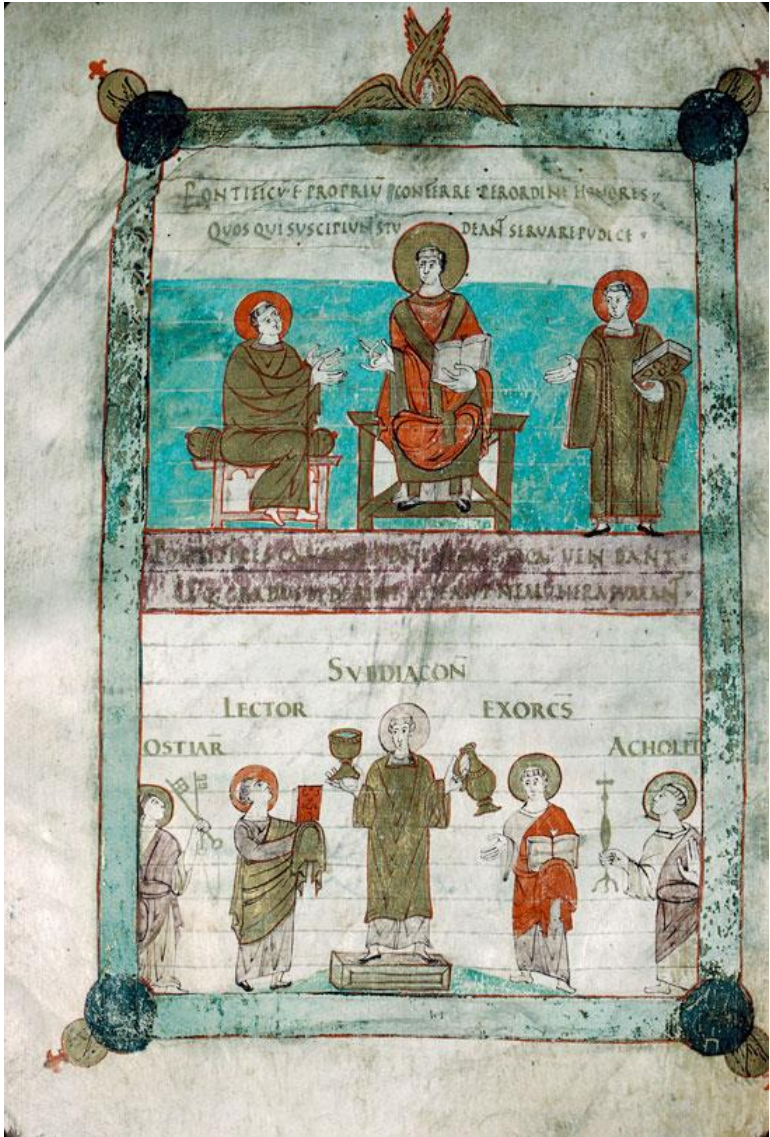 PONTIFICV̄ E PROPRIŪ CONFERRE PER ORDINE HONORES
QUOS QUI SUSCIPIUN STU DEAN̄ SERVARE PUDICE
PONTIFICES
GRADUS MUNERA
SVBDIACON̄
LECTOR EXORCS̄
OSTIAR̄ ACHOLIT̄